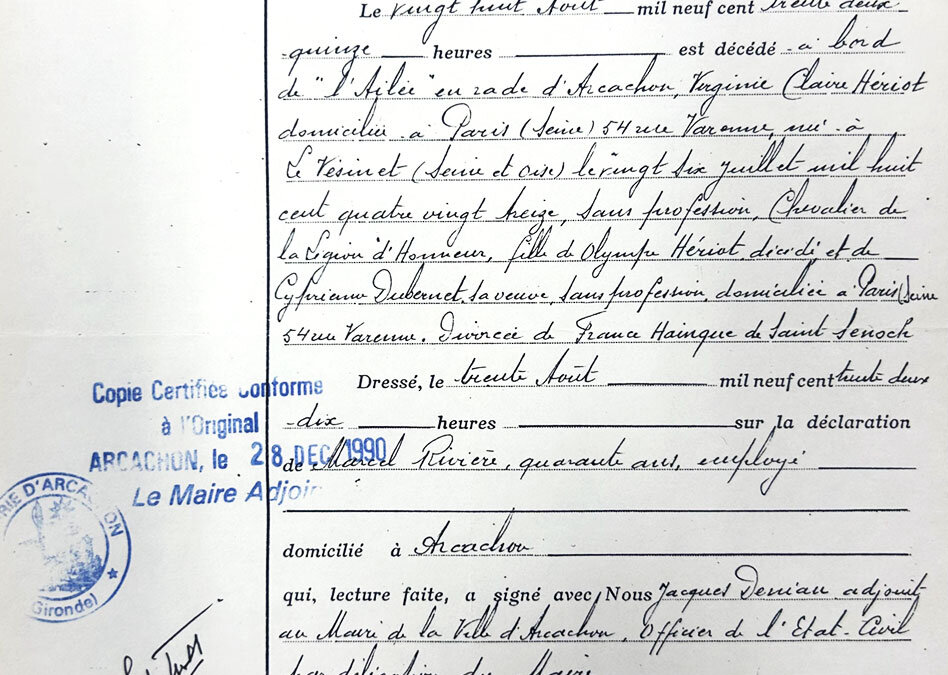 Le vingt huit Août mil neuf cent trente deux
quinze heures est décédé à bord
de "l'Ailée" en rade d'Arcachon, Virginie Claire Hériot
domiciliée à Paris (Seine) 54 rue Varenne, née à
Le Vésinet (Seine et Oise) le vingt six juillet mil huit
cent quatre vingt treize, sans profession, Chevalier de
la Légion d'Honneur, fille de Olympe Hériot, décédé et de
Cyprienne Dubernet, sa veuve, sans profession, domiciliée à Paris (Seine
54 rue Varenne. Divorcée de France Hainque de Saint Senoch
Dressé, le trente Août mil neuf cent trente deux
dix heures sur la déclaration
de Marcel Rivière, quarante ans, employé
domicilié à Arcachon
qui, lecture faite, a signé avec Nous Jacques Deniau adjoint
au Maire de la Ville d'Arcachon, Officier de l'Etat-Civil
par délégation du Maire.
Copie Certifiée Conforme
à l'Original
ARCACHON, le 28 DEC 1990
Le Maire Adjoin
RIE D'ARCACHON
Gironde)